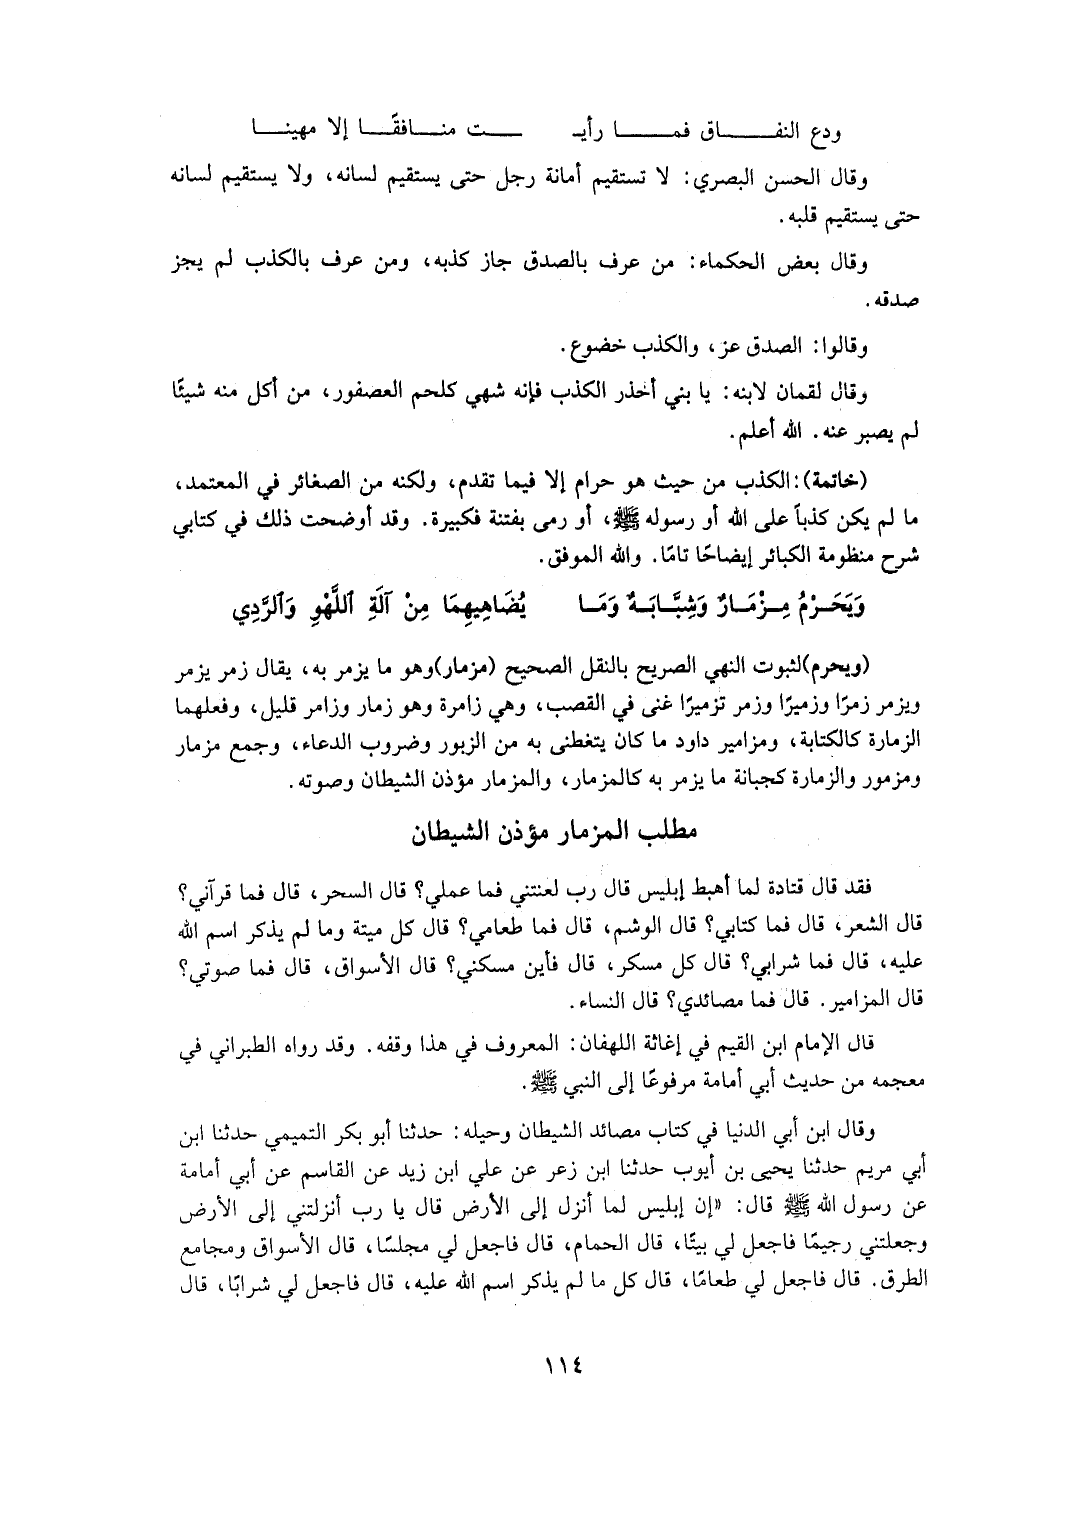 ودع النفـــــاق فمـــــا رأيـ ـــــت منـــافقًـــا إلا مهينـــا
وقال الحسن البصري: لا تستقيم أمانة رجل حتى يستقيم لسانه، ولا يستقيم لسانه
حتى يستقيم قلبه.
وقال بعض الحكماء: من عرف بالصدق جاز كذبه، ومن عرف بالكذب لم يجز
صدقه.
وقالوا: الصدق عز، والكذب خضوع.
وقال لقمان لابنه: يا بني أحذر الكذب فإنه شهي كلحم العصفور، من أكل منه شيئًا
لم يصبر عنه. الله أعلم.
(خاتمة): الكذب من حيث هو حرام إلا فيما تقدم، ولكنه من الصغائر في المعتمد،
ما لم يكن كذباً على الله أو رسوله ﷺ، أو رمى بفتنة فكبيرة. وقد أوضحت ذلك في كتابي
شرح منظومة الكبائر إيضاحًا تامًا. والله الموفق.
وَيَحْـرُمُ مِـزْمَـارٌ وَشِبَّـابَـةٌ وَمَـا يُضَاهِيهِمَا مِنْ آلَةِ اللَّهْوِ وَالرَّدِي
(ويحرم) لثبوت النهي الصريح بالنقل الصحيح (مزمار) وهو ما يزمر به، يقال زمر يزمر
ويزمر زمرًا وزميرًا وزمر تزميرًا غنى في القصب، وهي زامرة وهو زمار وزامر قليل، وفعلهما
الزمارة كالكتابة، ومزامير داود ما كان يتغطنى به من الزبور وضروب الدعاء، وجمع مزمار
ومزمور والزمارة كجبانة ما يزمر به كالمزمار، والمزمار مؤذن الشيطان وصوته.
مطلب المزمار مؤذن الشيطان
فقد قال قتادة لما أهبط إبليس قال رب لعنتني فما عملي؟ قال السحر، قال فما قرآني؟
قال الشعر، قال فما كتابي؟ قال الوشم، قال فما طعامي؟ قال كل ميتة وما لم يذكر اسم الله
عليه، قال فما شرابي؟ قال كل مسكر، قال فأين مسكني؟ قال الأسواق، قال فما صوتي؟
قال المزامير. قال فما مصائدي؟ قال النساء.
قال الإمام ابن القيم في إغاثة اللهفان: المعروف في هذا وقفه. وقد رواه الطبراني في
معجمه من حديث أبي أمامة مرفوعًا إلى النبي ﷺ.
وقال ابن أبي الدنيا في كتاب مصائد الشيطان وحيله: حدثنا أبو بكر التميمي حدثنا ابن
أبي مريم حدثنا يحيى بن أيوب حدثنا ابن زعر عن علي ابن زيد عن القاسم عن أبي أمامة
عن رسول الله ﷺ قال: «إن إبليس لما أنزل إلى الأرض قال يا رب أنزلتني إلى الأرض
وجعلتني رجيمًا فاجعل لي بيتًا، قال الحمام، قال فاجعل لي مجلسًا، قال الأسواق ومجامع
الطرق. قال فاجعل لي طعامًا، قال كل ما لم يذكر اسم الله عليه، قال فاجعل لي شرابًا، قال
١١٤